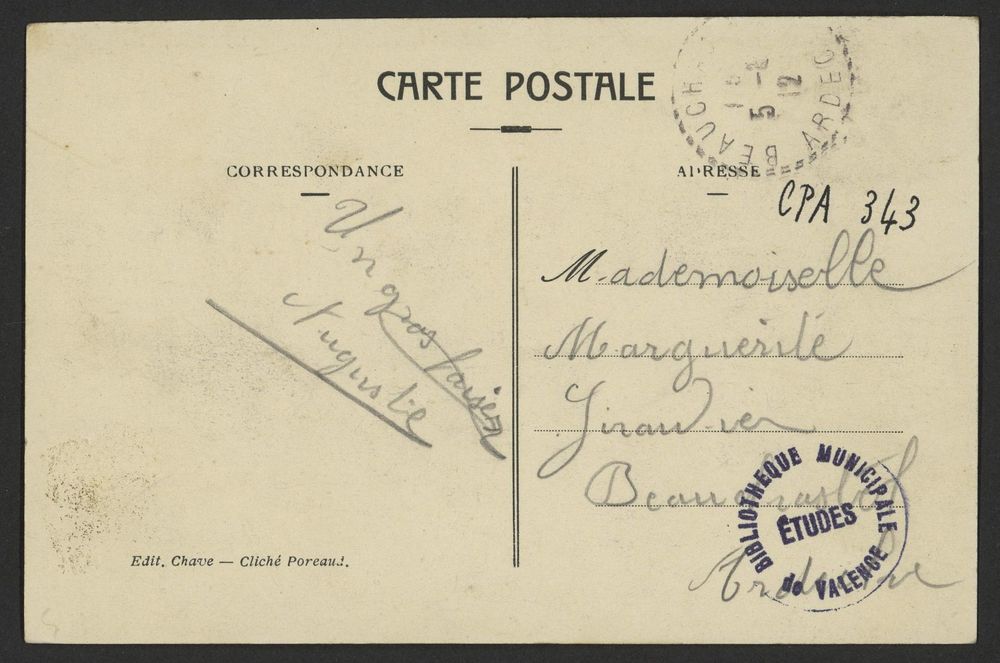 CARTE POSTALE
BEAUCH
5 -2
12
ARDEC
CORRESPONDANCE
ADRESSE
CPA 343
Un gros baiser
Auguste
Mademoiselle
Marguerite
Beauchastel
Ardèche
BIBLIOTHEQUE MUNICIPALE
ÉTUDES
de VALENCE
Edit. Chave — Cliché Poreaud.